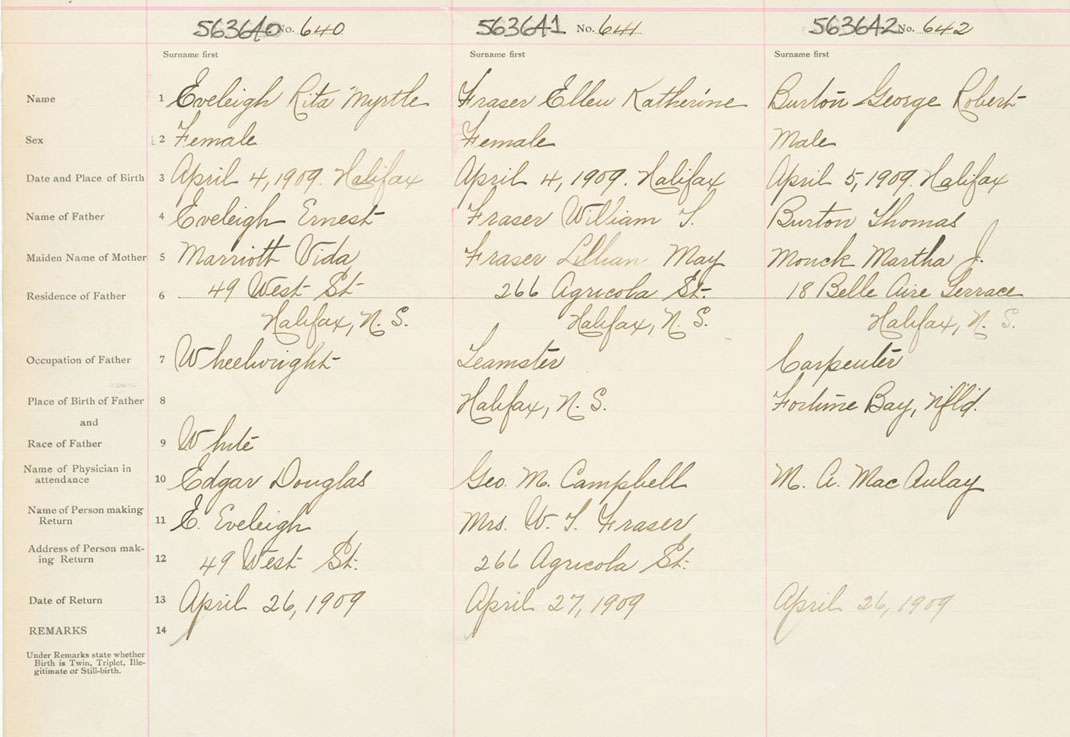 563640 No. 640 563641 No. 641 563642 No. 642
Surname first Surname first Surname first
Name 1 Eveleigh Rita Myrtle Fraser Ellen Katherine Burton George Robert
Sex 2 Female Female Male
Date and Place of Birth 3 April 4, 1909. Halifax April 4, 1909. Halifax April 5, 1909. Halifax
Name of Father 4 Eveleigh Ernest Fraser William T. Burton Thomas
Maiden Name of Mother 5 Marriott Vida Fraser Lillian May Monck Martha J.
Residence of Father 6 49 West St. 266 Agricola St. 18 Belle Aire Terrace
Halifax, N. S. Halifax, N. S. Halifax, N. S.
Occupation of Father 7 Wheelwright Teamster Carpenter
Place of Birth of Father 8 Halifax, N. S. Fortune Bay, Nfld.
and
Race of Father 9 White
Name of Physician in
attendance 10 Edgar Douglas Geo. M. Campbell M. A. MacAulay
Name of Person making
Return 11 E. Eveleigh Mrs. W. T. Fraser
Address of Person mak-
ing Return 12 49 West St. 266 Agricola St.
Date of Return 13 April 26, 1909 April 27, 1909 April 26, 1909
REMARKS 14
Under Remarks state whether
Birth is Twin, Triplet, Ille-
gitimate or Still-birth.